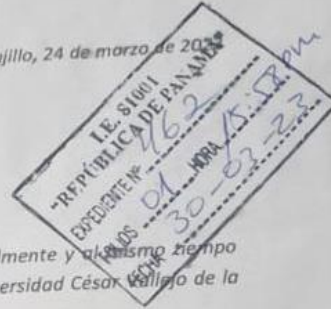 jillo, 24 de marzo de 2023
I.E. 81001
"REPÚBLICA DE PANAMÁ"
EXPEDIENTE Nº 462
FOLIOS 01 HORA 15:58 pm
FECHA 30-03-23
lmente y al mismo tiempo
versidad César Vallejo de la